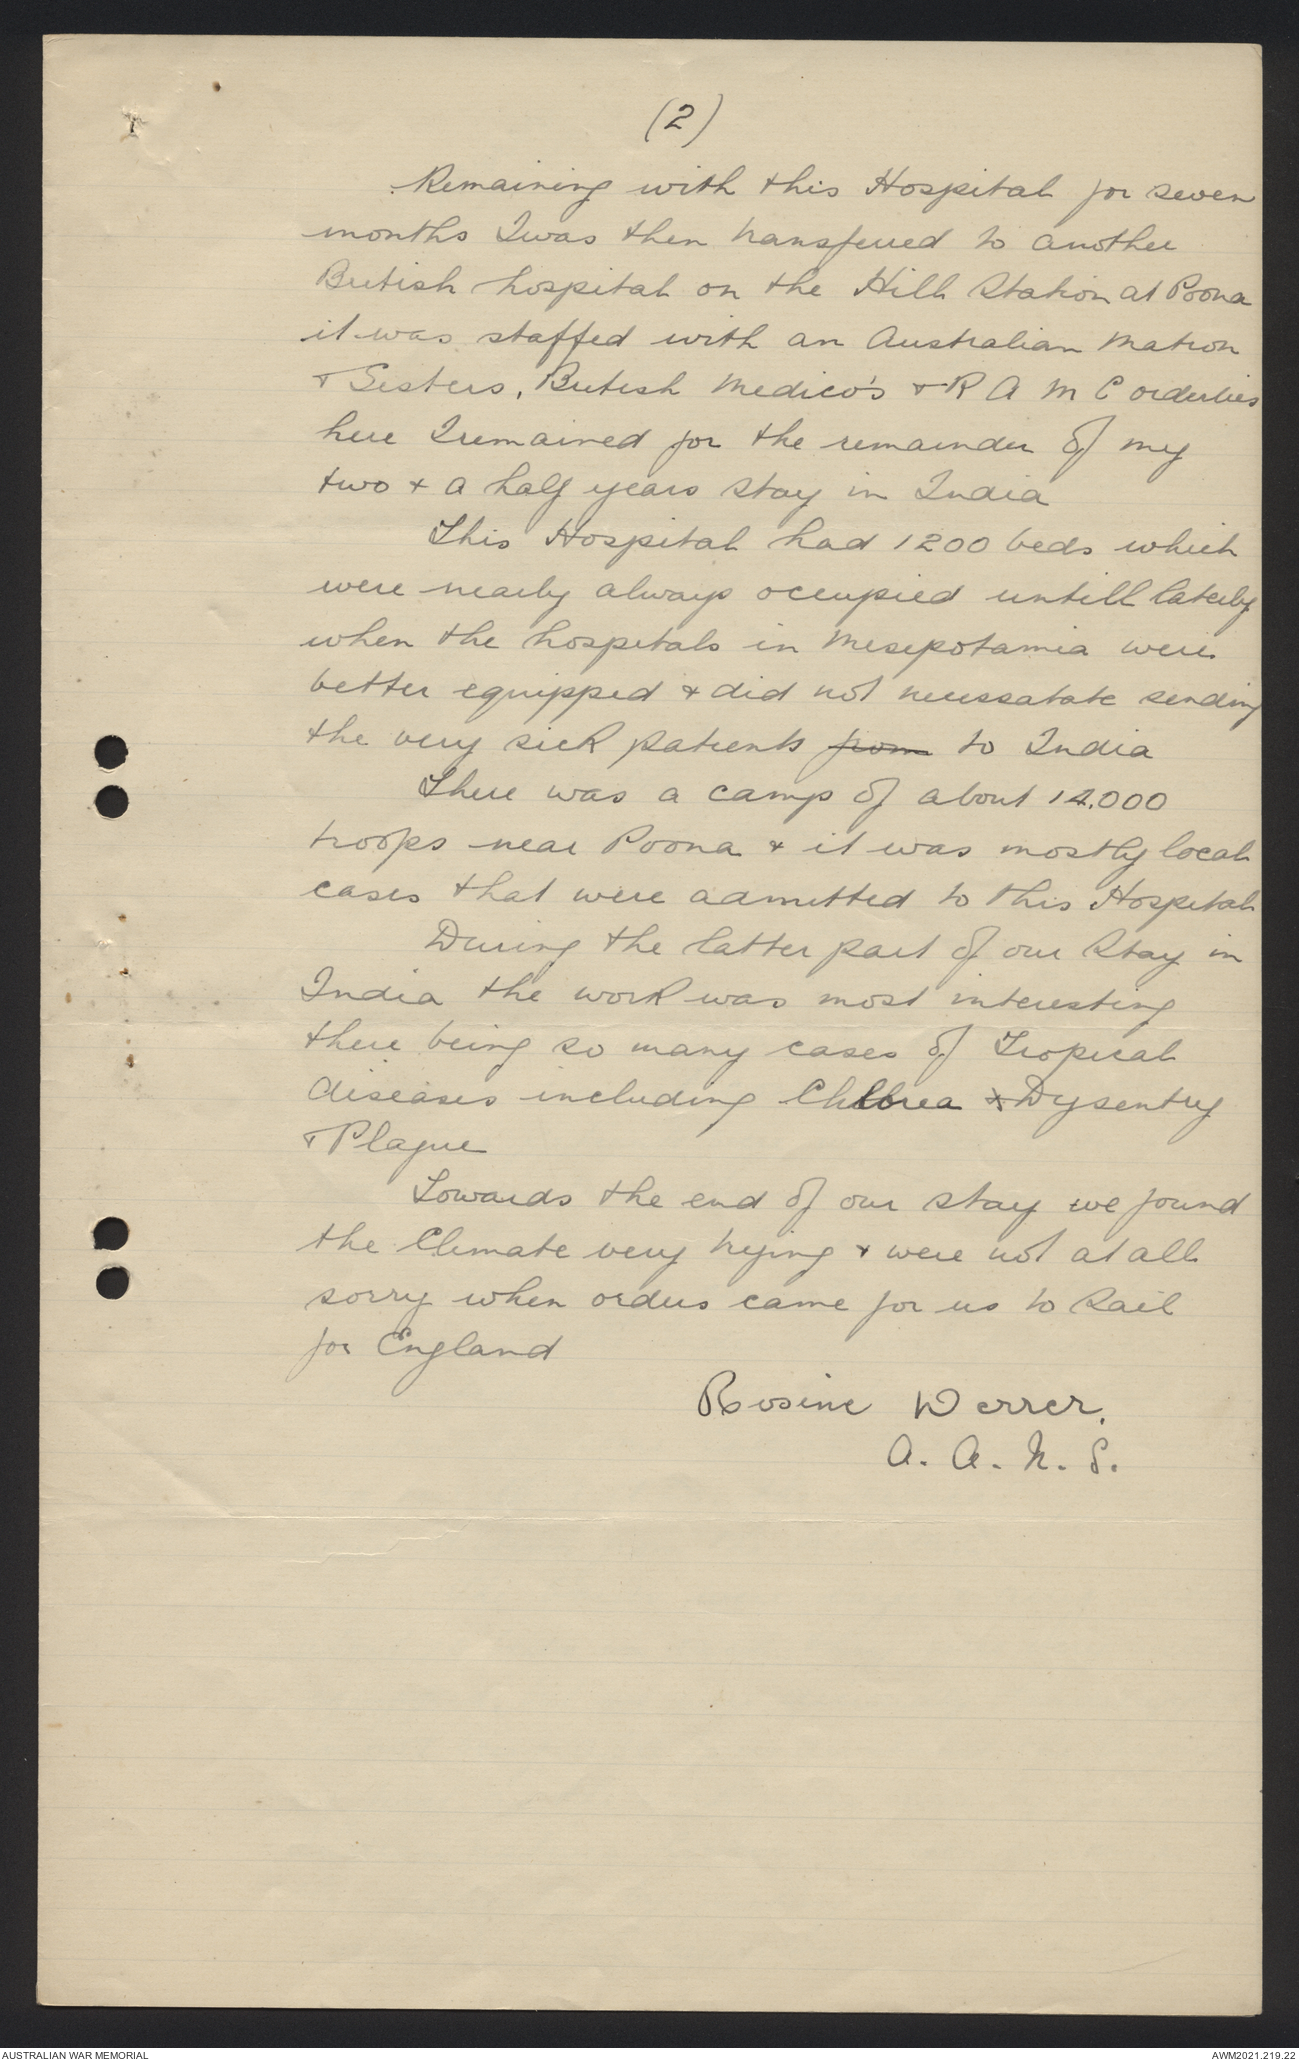 (2)
Remaining with this Hospital for seven
months I was then transferred to another
British hospital on the Hill Station at Poona
it was staffed with an Australian Matron
& Sisters, British Medico's & R A M C orderlies
here I remained for the remainder of my
two & a half years stay in India
This Hospital had 1200 beds which
were nearly always occupied untill laterly
when the hospitals in Mesepotamia were
better equipped & did not necessatate sending
the very sick patients from to India
There was a camp of about 12.000
troops near Poona & it was mostly local
cases that were admitted to this Hospital
During the latter part of our stay in
India the work was most interesting
there being so many cases of Tropical
diseases including & Dysentry
& Plague
Towards the end of our stay we found
the Climate very trying & were not at all
sorry when orders came for us to sail
for England
Rosine Derrer.
A. A. N. S.
AUSTRALIAN WAR MEMORIAL
AWM2021.219.22